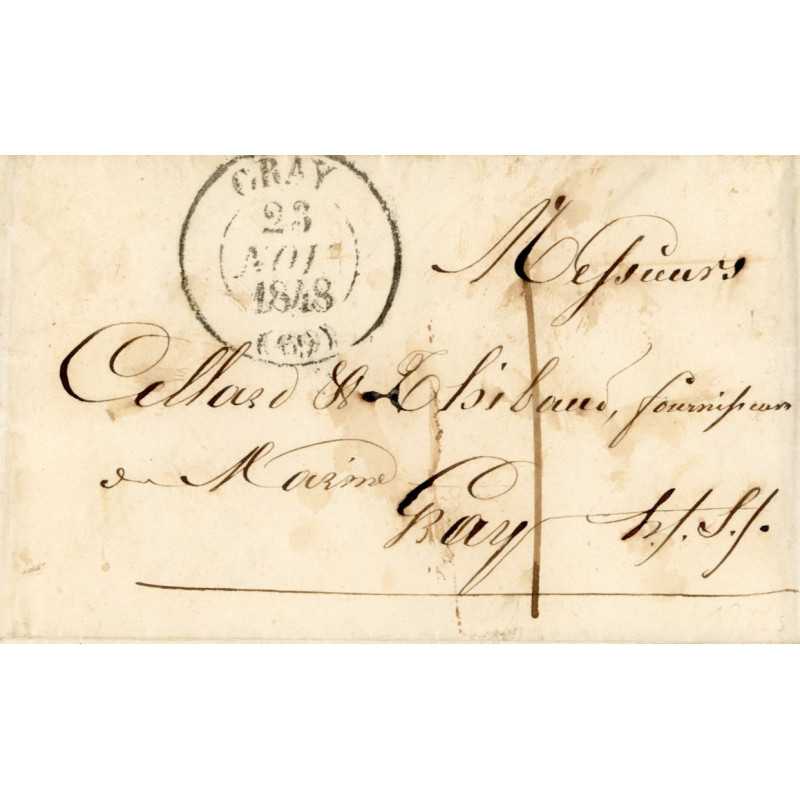 GRAY
23
NOV
1848
(69)
Messieurs
Cellard & Thibaud, fournisseurs
de Marine
Gray h./. S./.